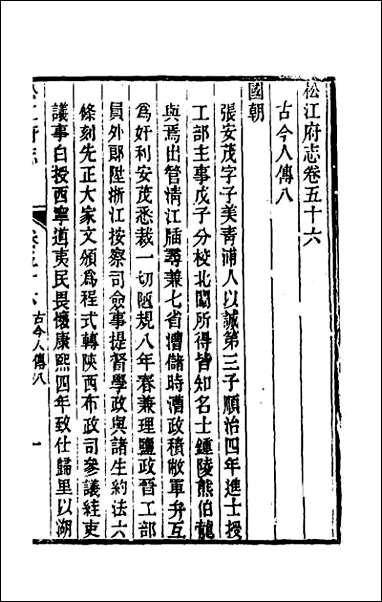 松江府志卷五十六
古今人傳八
國朝
張安茂字子美靑浦人以誠第三子順治四年進士授
工部主事戊子分校北闈所得皆知名士鍾陵熊伯龍
與焉出管淸江牐尋兼七省漕儲時漕政積敝軍弁互
爲奸利安茂悉裁一切陋規八年春兼理鹽政晉工部
員外郞陞浙江按察司僉事提督學政與諸生約法六
條刻先正大家文頒爲程式轉陝西布政司參議絓吏
議事白授西寧道夷民畏懷康熙四年致仕歸里以湖
古今人傳八
一